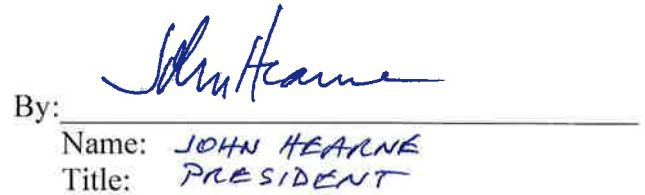 John Hearne
By:
Name: JOHN HEARNE
Title: PRESIDENT